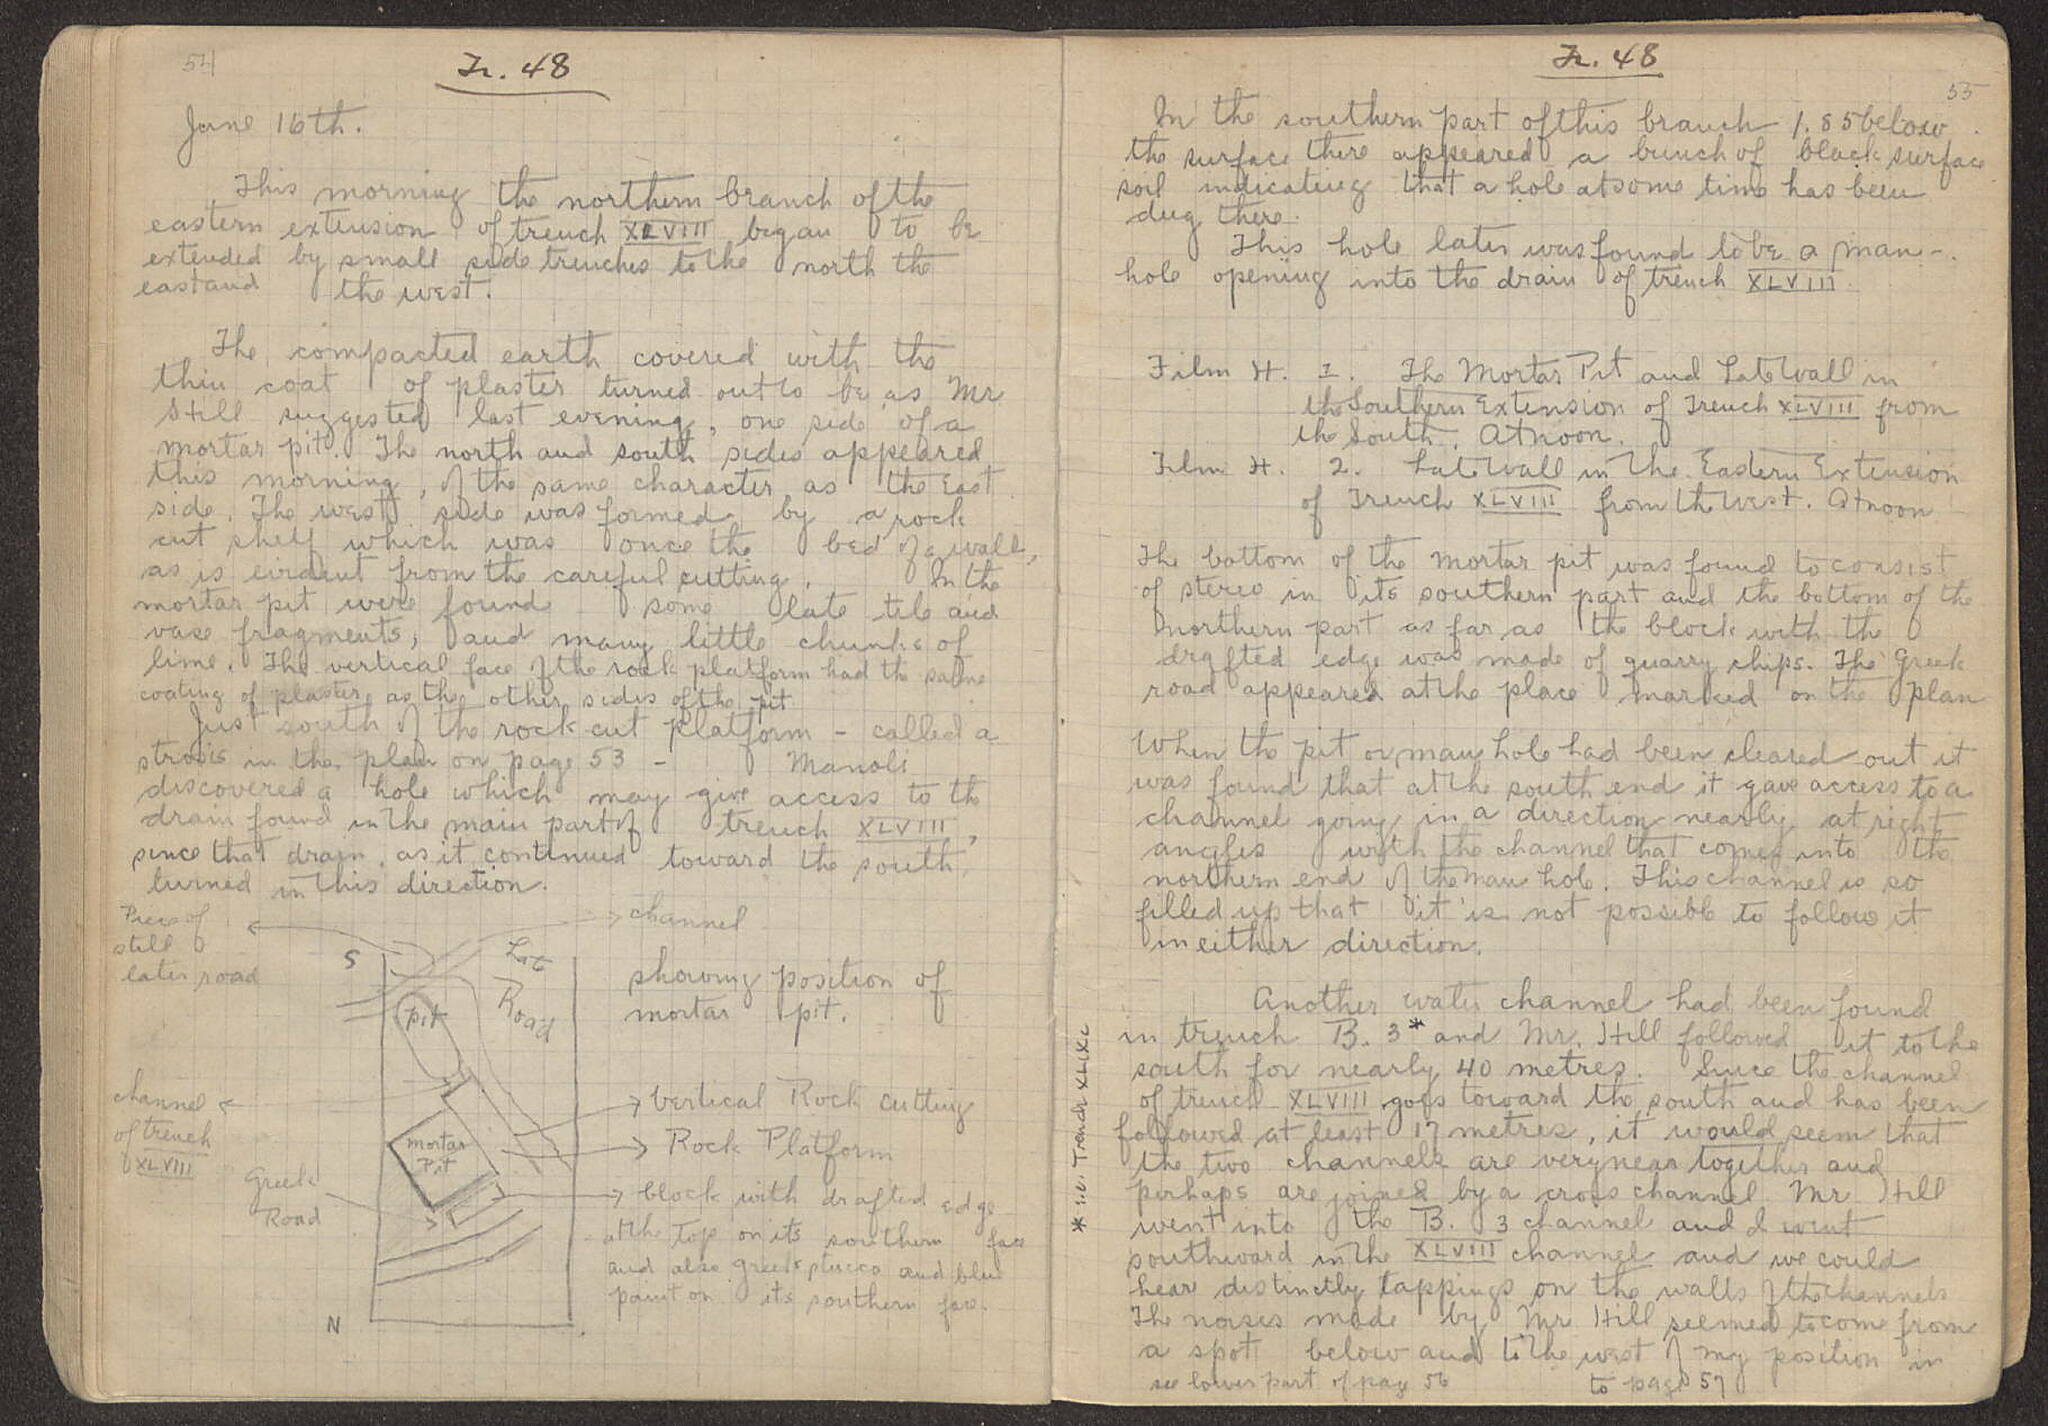 54
Tr. 48
June 16th.
This morning the northern branch of the
eastern extension of trench XLVIII began to be
extended by small side trenches to the north the
east and the west.
The compacted earth covered with the
thin coat of plaster turned out to be as Mr
Hill suggested last evening, one side of a
mortar pit. The north and south sides appeared
this morning, of the same character as the East
side. The west side was formed by a rock
cut shelf which was once the bed of a wall,
as is evident from the careful cutting. In the
mortar pit were found some late tile and
vase fragments, and many little chunks of
lime. The vertical face of the rock platform had the same
coating of plaster as the other sides of the pit
Just south of the rock cut platform - called a
strosis in the plan on page 53 - Manoli
discovered a hole which may give access to the
drain found in the main part of trench XLVIII,
since that drain, as it continued toward the south,
turned in this direction.
Piece of
still
later road
channel
S
Late
Road
pit
showing position of
mortar pit.
channel
of trench
XLVIII
Vertical Rock Cutting
mortar
Pit
Rock Platform
Greek
Road
block with drafted edge
at the top on its southern face
and also greek stucco and blue
paint on its southern face.
N
Tr. 48
55
In the southern part of this branch 1.85 below
the surface there appeared a bunch of black surface
soil indicating that a hole at some time has been
dug there.
This hole later was found to be a man-
hole opening into the drain of trench XLVIII
Film H. 1. The Mortar Pit and Late Wall in
the Southern Extension of Trench XLVIII from
the South. At noon.
Film H. 2. Late Wall in the Eastern Extension
of Trench XLVIII from the West. At noon
The bottom of the mortar pit was found to consist
of stereo in its southern part and the bottom of the
northern part as far as the block with the
drafted edge was made of quarry chips. The Greek
road appeared at the place marked on the plan
When the pit or man hole had been cleared out it
was found that at the south end it gave access to a
channel going in a direction nearly at right
angles with the channel that comes into the
northern end of the man hole. This channel is so
filled up that it is not possible to follow it
in either direction.
Another water channel had been found
in trench B. 3* and Mr. Hill followed it to the
south for nearly 40 metres. Since the channel
of trench XLVIII goes toward the south and has been
followed at least 17 metres, it would seem that
the two channels are very near together and
perhaps are joined by a cross channel. Mr Hill
went into the B. 3 channel and I went
southward in the XLVIII channel and we could
hear distinctly tappings on the walls of the channels
The noises made by Mr Hill seemed to come from
a spot below and to the west of my position in
see lower part of page 56
to page 57
* i.e. Trench XLIX c